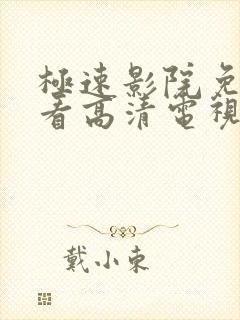 極速影院免
看高清電視
戴小東